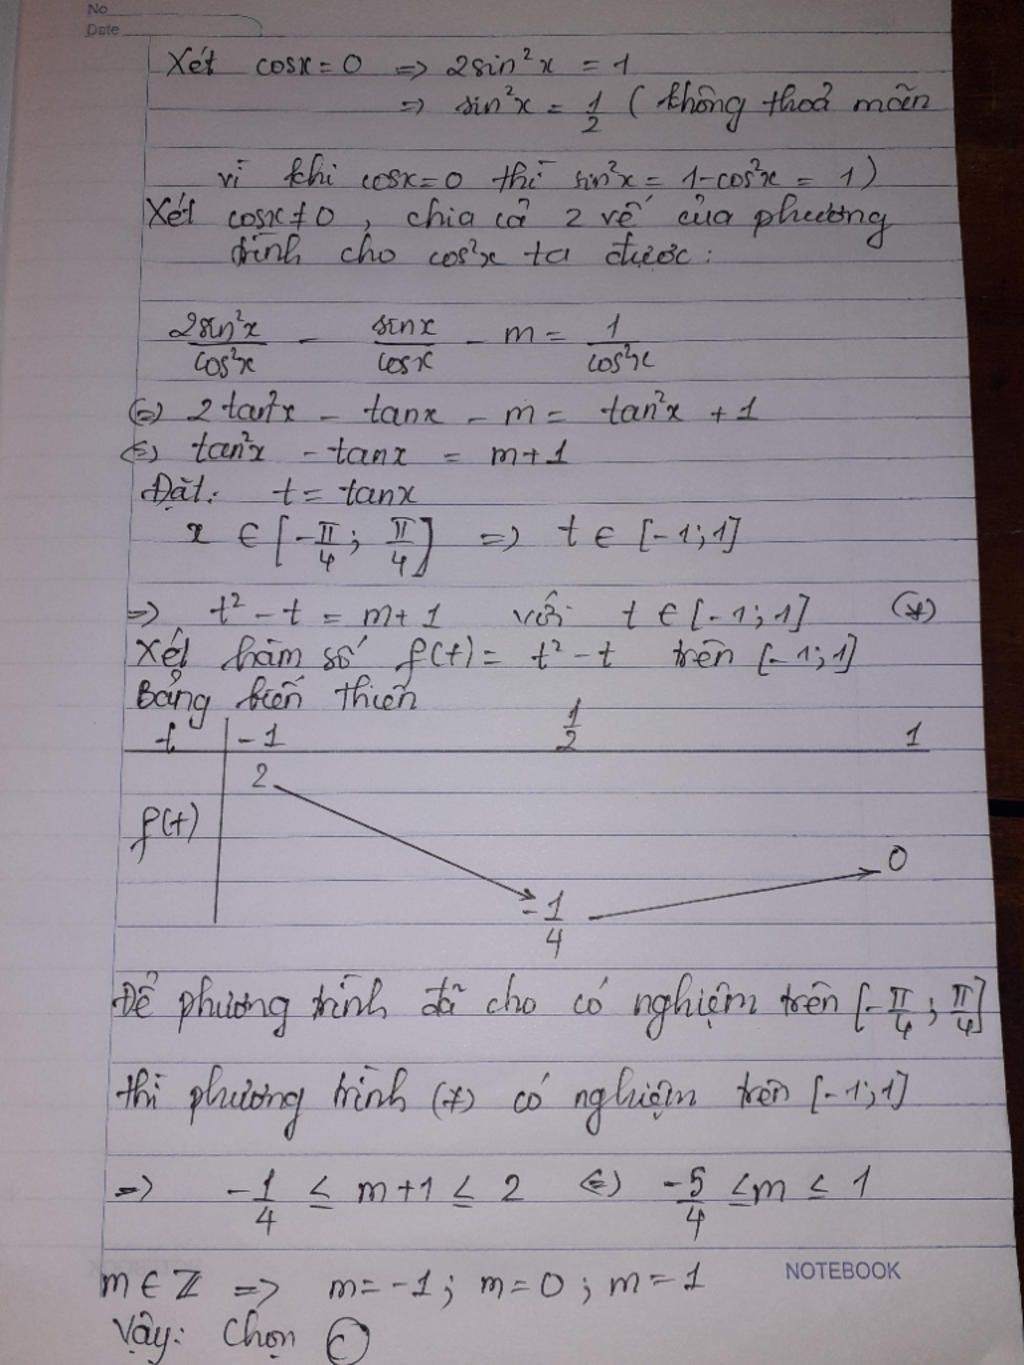 No
Date
Xét cosx = 0 => 2sin²x = 1
=> sin²x = 1/2 ( không thoả mãn
vì khi cosx=0 thì sin²x = 1-cos²x = 1)
Xét cosx≠0 , chia cả 2 vế của phương
trình cho cos²x ta được :
2sin²x/cos²x - sinx/cosx - m = 1/cos²x
(=) 2tan²x - tanx - m = tan²x + 1
(=) tan²x - tanx = m+1
Đặt: t = tanx
x ∈ [-π/4 ; π/4] => t ∈ [-1;1]
=> t² - t = m+1 với t ∈ [-1;1] (*)
Xét hàm số f(t) = t² - t trên [-1;1]
Bảng biến thiên
t -1 1/2 1
2
f(t)
0
-1/4
Để phương trình đã cho có nghiệm trên [-π/4 ; π/4]
thì phương trình (*) có nghiệm trên [-1;1]
=> -1/4 ≤ m+1 ≤ 2 (=) -5/4 ≤ m ≤ 1
NOTEBOOK
m ∈ Z => m=-1 ; m=0 ; m=1
Vậy: Chọn C